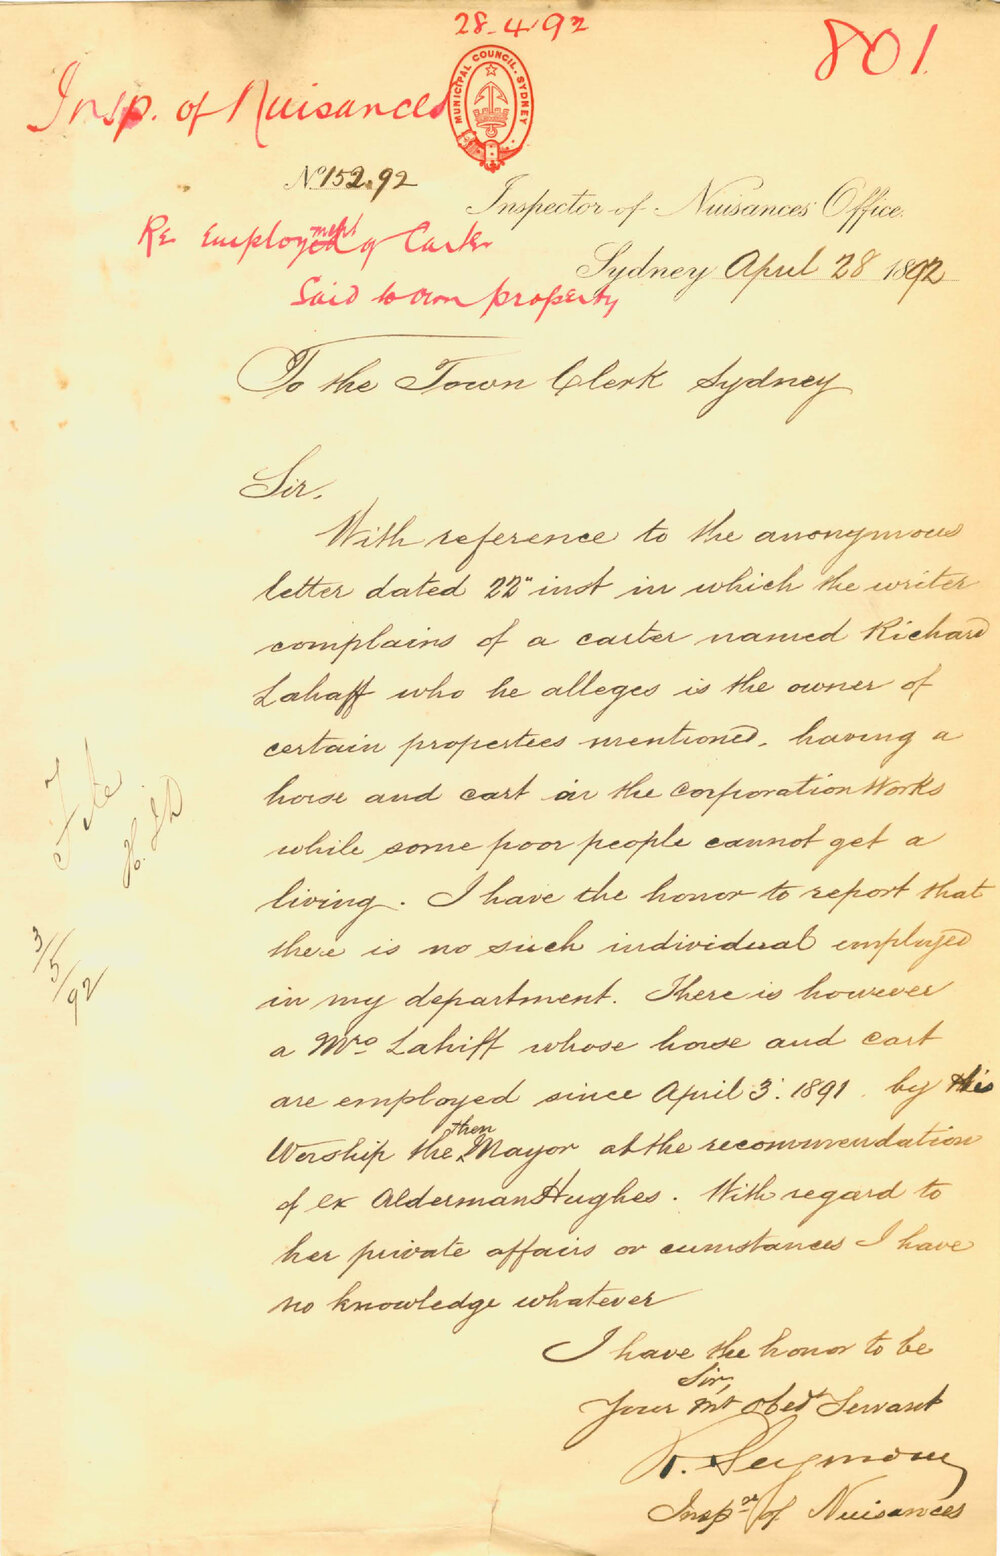 28.4.92
801.
Insp. of Nuisances
MUNICIPAL COUNCIL. SYDNEY
No 152.92
Inspector of Nuisances Office.
Re Employment of Carter
Sydney April 28 1892
Said to own property
To the Town Clerk Sydney
Sir.
With reference to the anonymous
letter dated 22" inst in which the writer
complains of a carter named Richard
Lahaff who he alleges is the owner of
certain propertees mentioned, having a
horse and cart in the Corporation Works
while some poor people cannot get a
living. I have the honor to report that
there is no such individual employed
in my department. There is however
a Mrs Lahiff whose horse and cart
are employed since April 3. 1891 by his
Worship the then Mayor at the recommendation
of ex Alderman Hughes. With regard to
her private affairs or cumstances I have
no knowledge whatever
I have the honor to be
Sir,
Your Mt Obedt Servant
R. Seymour
Inspor of Nuisances
File
3/5/92